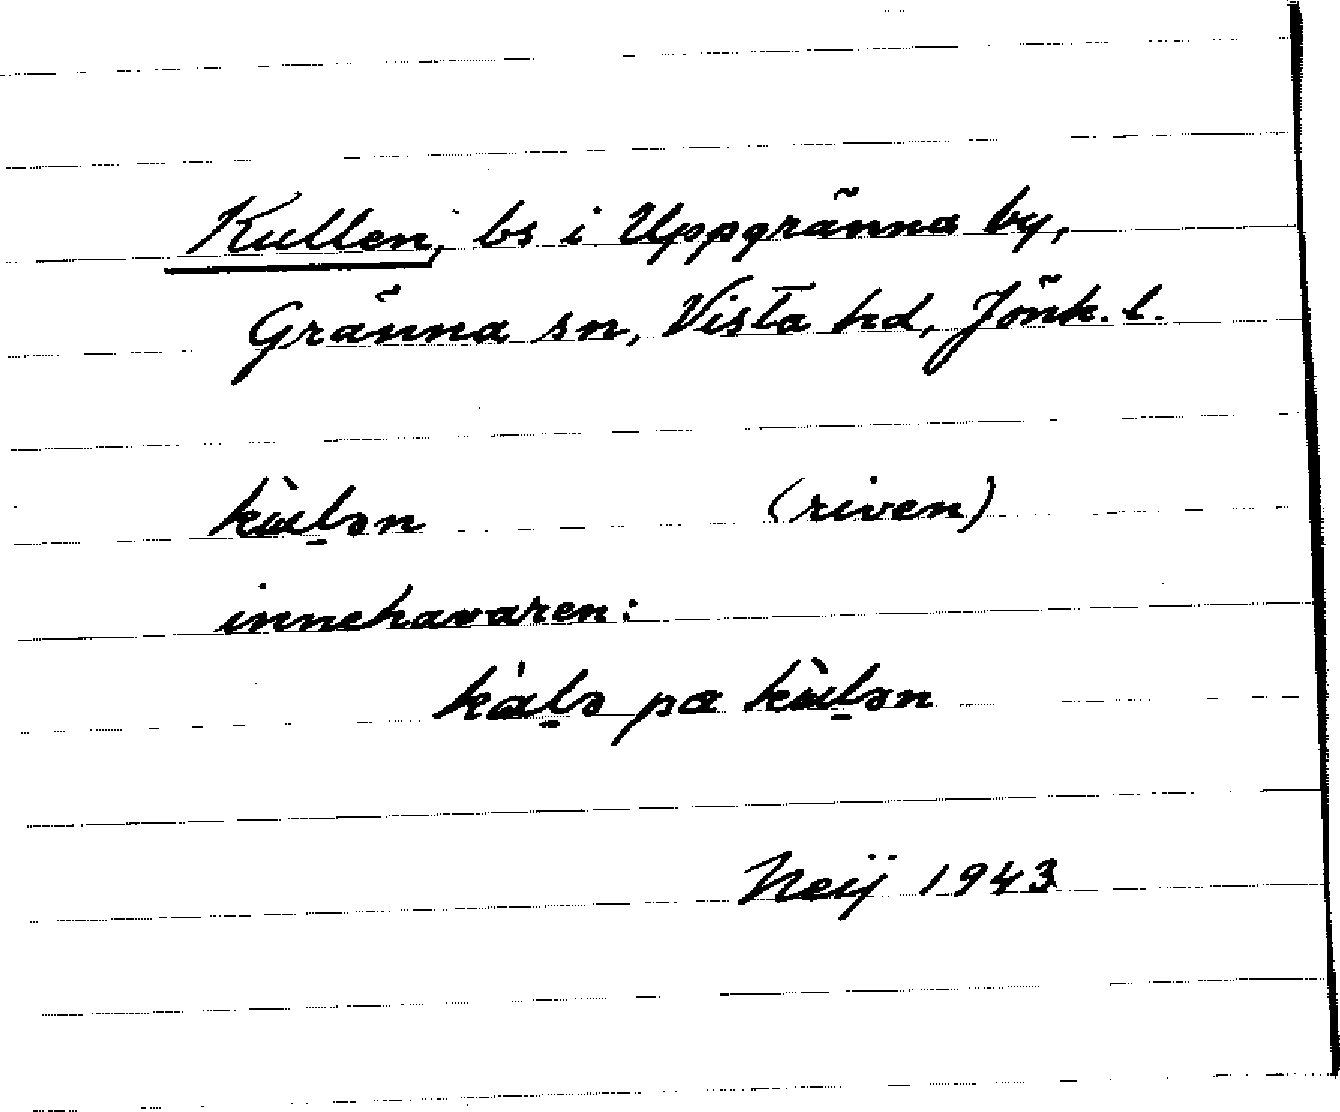 Kullen, bs i Uppgränna by,
Gränna sn, Vista hd, Jönk. l.
(riven)
innehavaren:
Neij 1943